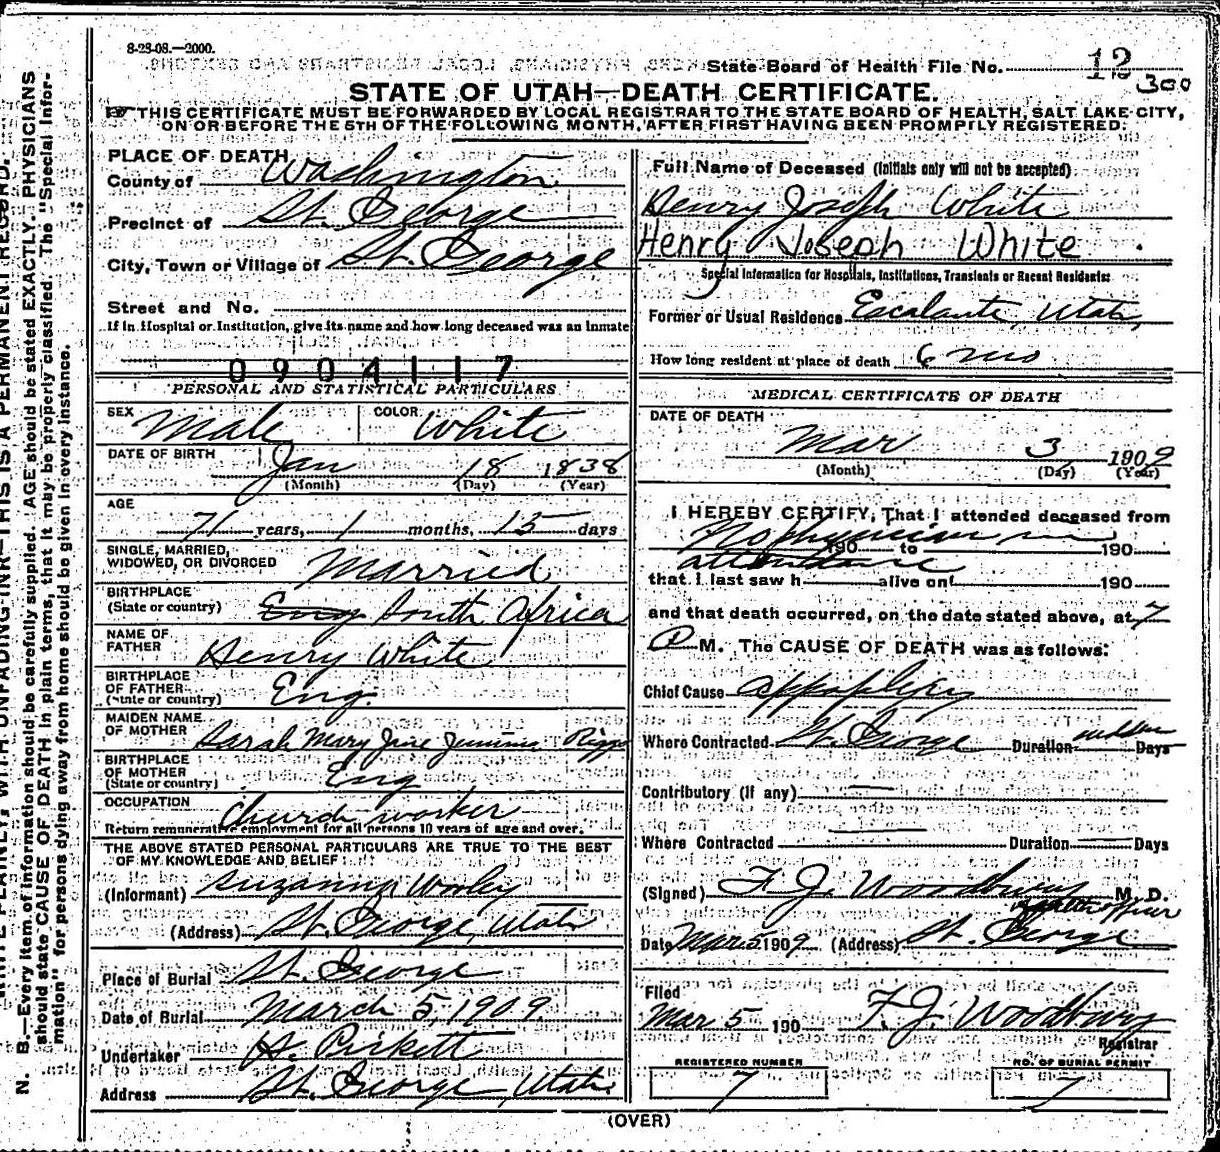 8-28-08.—2000.
State Board of Health File No. 12
300
STATE OF UTAH—DEATH CERTIFICATE.
THIS CERTIFICATE MUST BE FORWARDED BY LOCAL REGISTRAR TO THE STATE BOARD OF HEALTH, SALT LAKE CITY,
ON OR BEFORE THE 5TH OF THE FOLLOWING MONTH, AFTER FIRST HAVING BEEN PROMPTLY REGISTERED.
PLACE OF DEATH
County of Washington
Precinct of St. George
City, Town or Village of St. George
Street and No.
If in Hospital or Institution, give its name and how long deceased was an inmate
0904117
PERSONAL AND STATISTICAL PARTICULARS
SEX Male COLOR White
DATE OF BIRTH Jan 18 1838
(Month) (Day) (Year)
AGE
71 years, 1 months, 15 days
SINGLE, MARRIED,
WIDOWED, OR DIVORCED Married
BIRTHPLACE
(State or country) Eng South Africa
NAME OF
FATHER Henry White
BIRTHPLACE
OF FATHER
(State or country) Eng.
MAIDEN NAME
OF MOTHER Sarah Mary Jane Riggs
BIRTHPLACE
OF MOTHER
(State or country) Eng
OCCUPATION Church worker
Return remunerative employment for all persons 10 years of age and over.
THE ABOVE STATED PERSONAL PARTICULARS ARE TRUE TO THE BEST
OF MY KNOWLEDGE AND BELIEF:
(Informant) Suzanna Worley
(Address) St. George, Utah
Place of Burial St. George
Date of Burial March 5, 1909
Undertaker A. Pickett
Address St. George, Utah
Full Name of Deceased (Initials only will not be accepted)
Henry Joseph White
Henry Joseph White
Special Information for Hospitals, Institutions, Transients or Recent Residents:
Former or Usual Residence Escalante, Utah,
How long resident at place of death 6 mo
MEDICAL CERTIFICATE OF DEATH
DATE OF DEATH
Mar 3 1909
(Month) (Day) (Year)
I HEREBY CERTIFY, That I attended deceased from
No physician in
190 to 190
attendance
that I last saw h alive on 190
and that death occurred, on the date stated above, at 7
P M. The CAUSE OF DEATH was as follows:
Chief Cause appoplexy
Where Contracted St. George Duration sudden Days
Contributory (if any)
Where Contracted Duration Days
(Signed) F. J. Woodbury M. D.
Health Officer
Date Mar 5 1909 (Address) St. George
Filed
Mar 5 190 F. J. Woodbury
Registrar
REGISTERED NUMBER
7
NO. OF BURIAL PERMIT
7
(OVER)
WRITE PLAINLY, WITH UNFADING INK—THIS IS A PERMANENT RECORD.
N. B.—Every item of information should be carefully supplied. AGE should be stated EXACTLY. PHYSICIANS
should state CAUSE OF DEATH in plain terms, that it may be properly classified. The "Special Infor-
mation" for persons dying away from home should be given in every instance.